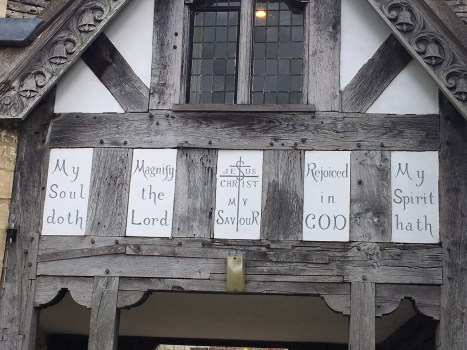 My
Soul
doth
Magnify
the
Lord
JESUS
CHRIST
MY
SAVIOUR
Rejoiced
in
GOD
My
Spirit
hath